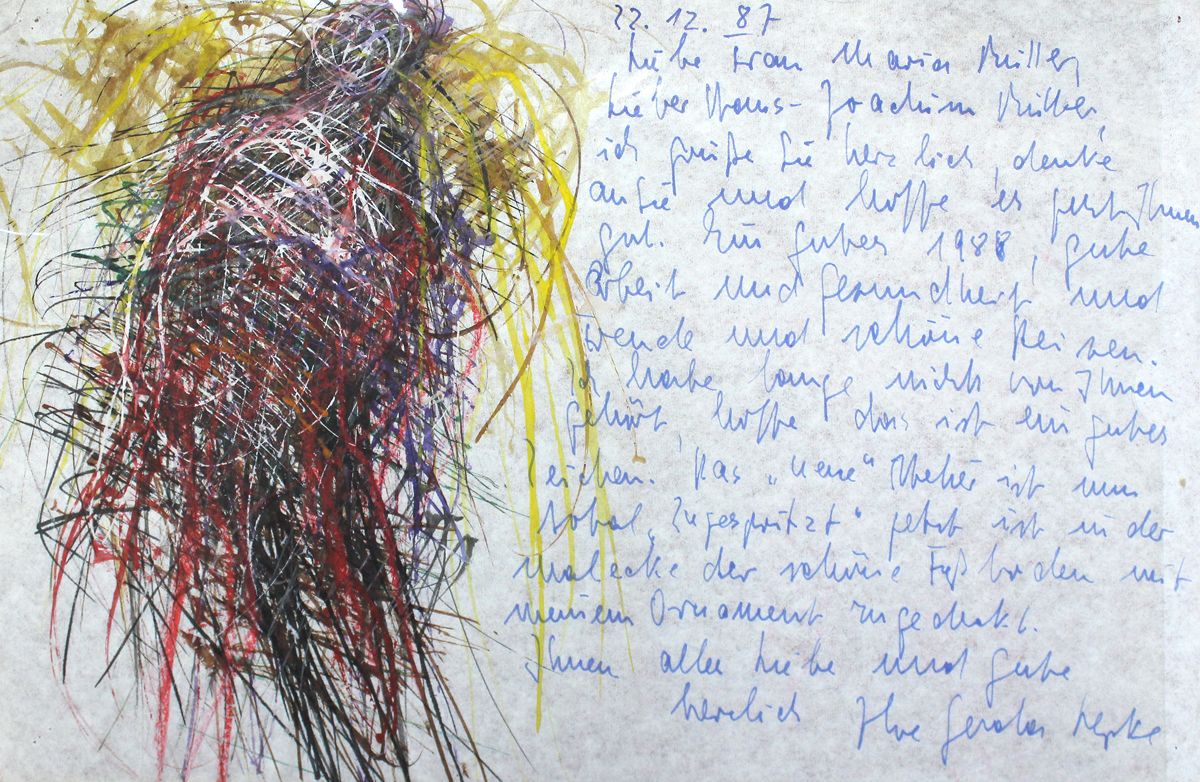 22.12.87
Liebe Frau Maria Müller,
Lieber Hans-Joachim Müller,
ich grüße Sie herzlich, denke
an Sie und hoffe es geht Ihnen
gut. Ein gutes 1988, gute
Arbeit und Gesundheit und
Freude und schöne Reisen.
Ich habe lange nichts von Ihnen
gehört, hoffe das ist ein gutes
Zeichen. Das „neue“ ist nun
total „zugespritzt“ jetzt ist in der
Malecke der schöne Fußboden mit
meinem Ornament zugedeckt.
Ihnen alles Liebe und Gute
herzlich Ihre Gerda